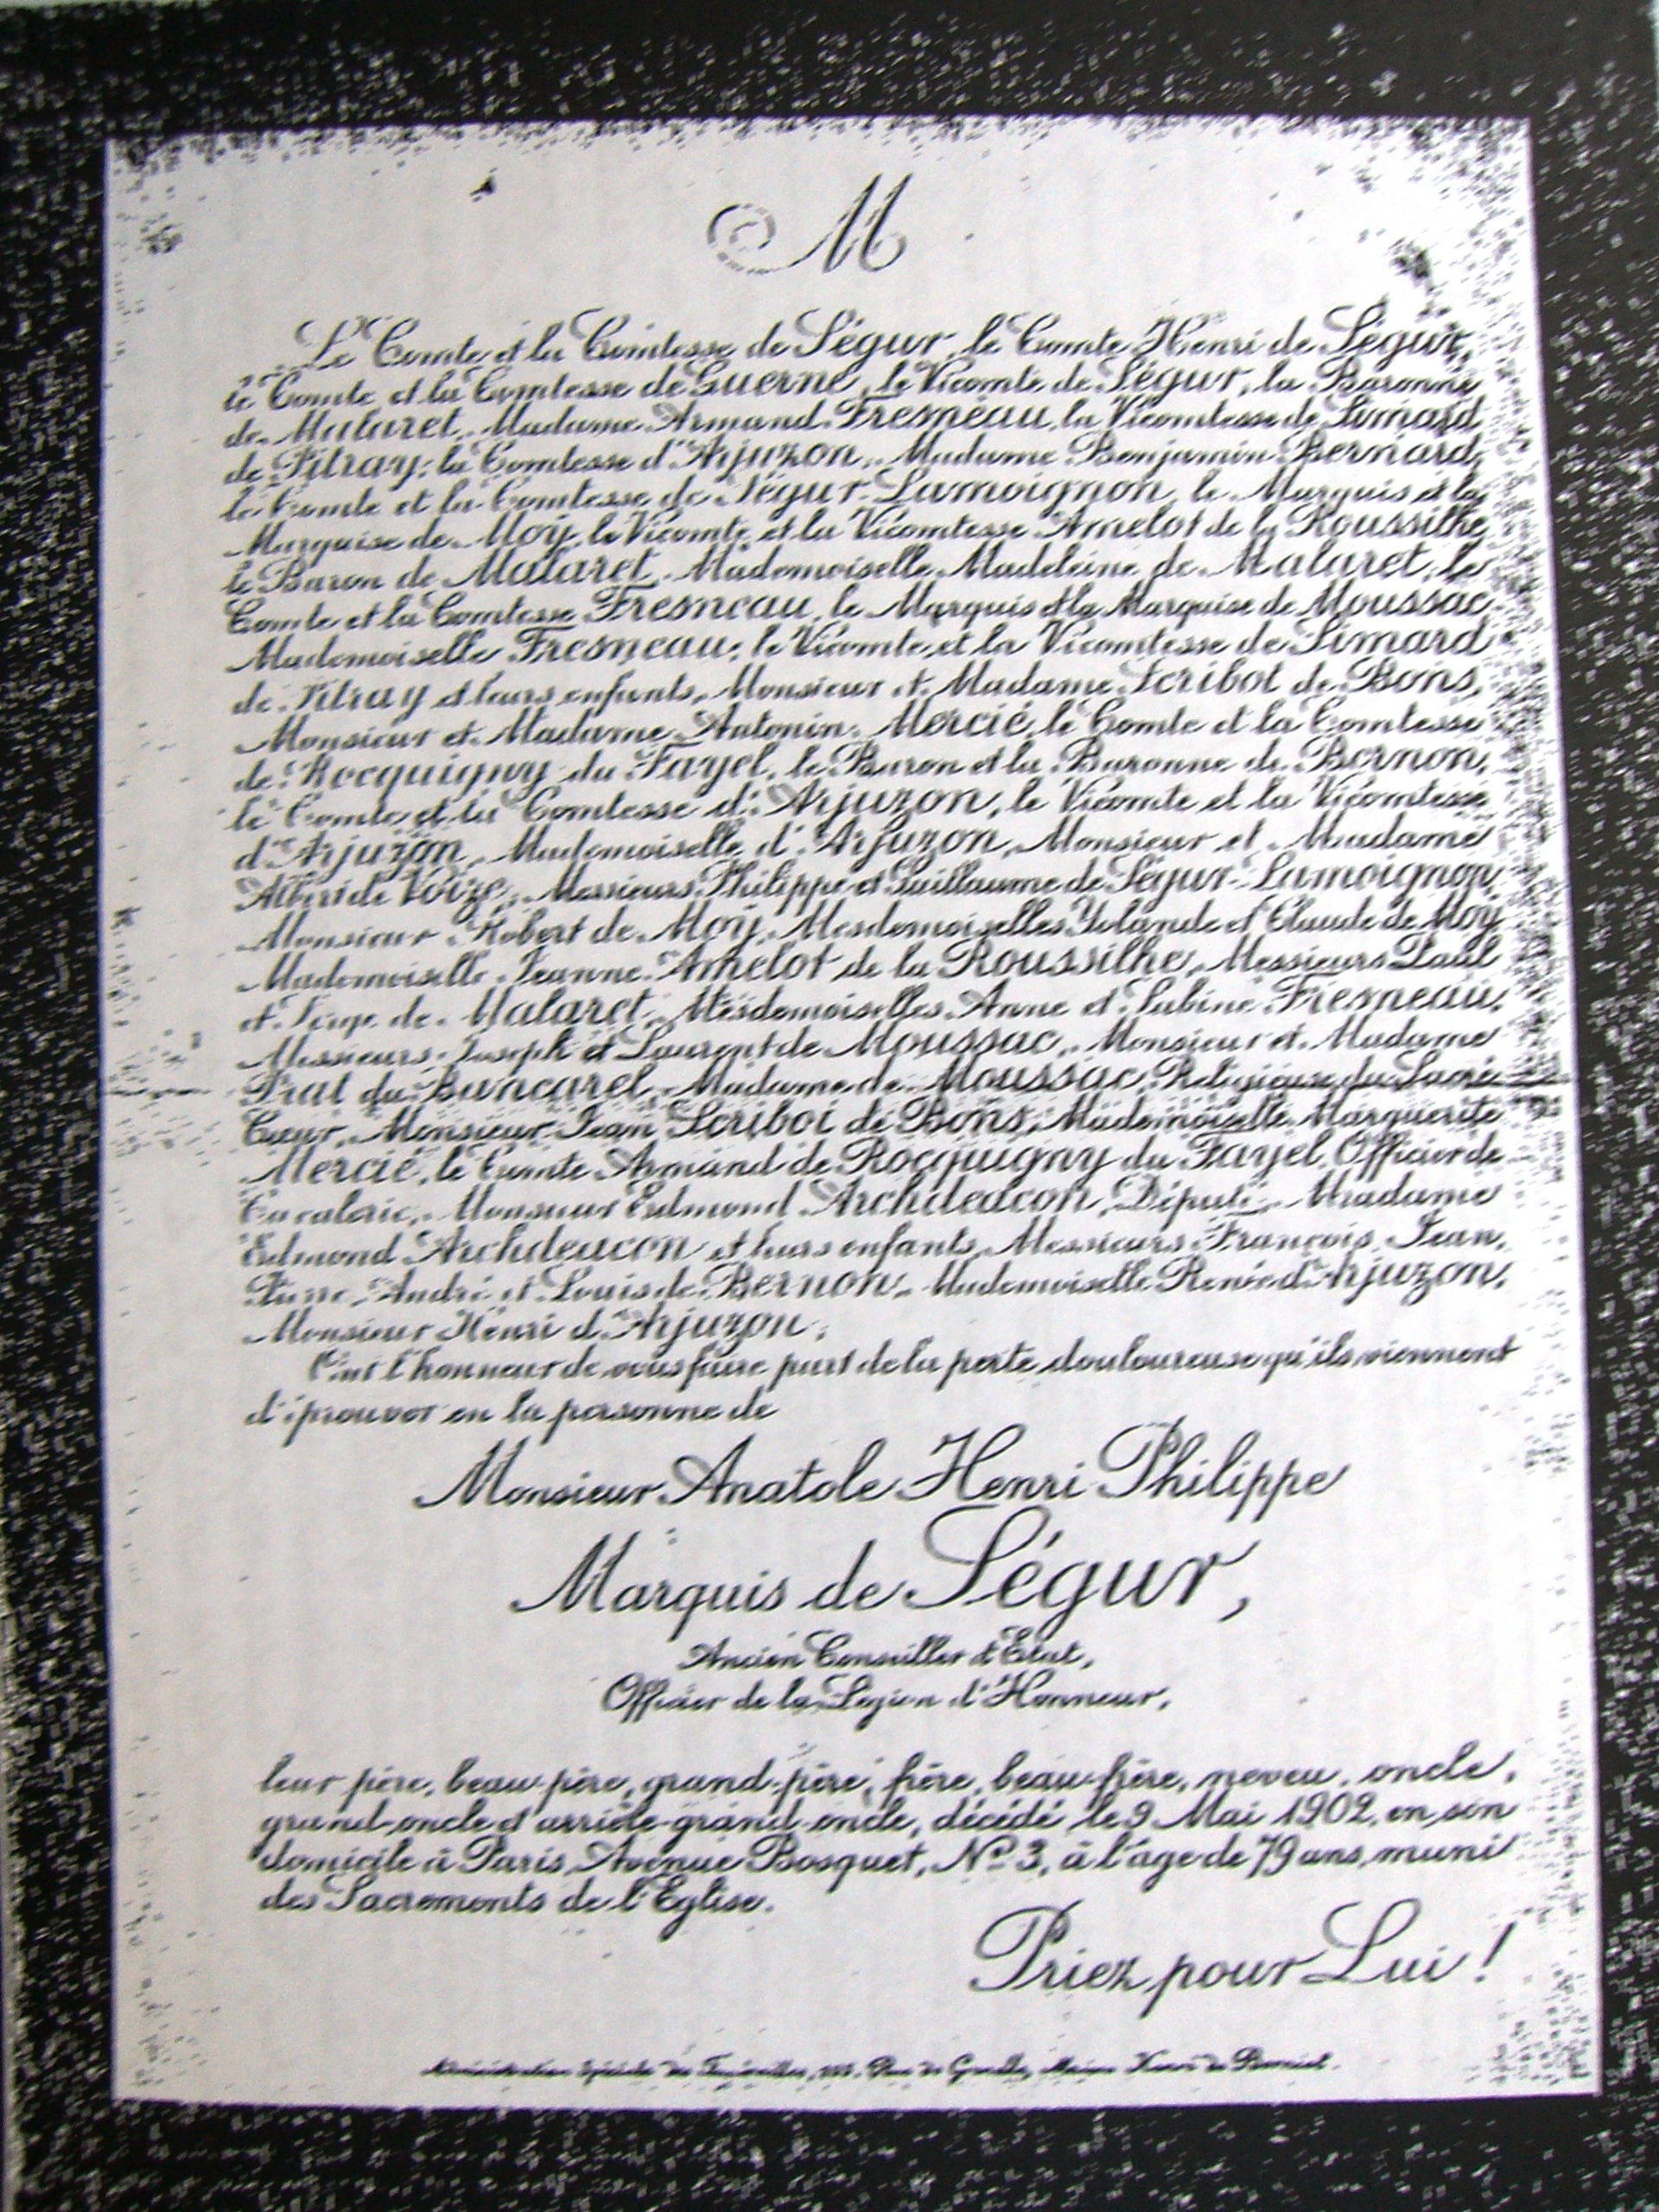 M
Le Comte et la Comtesse de Ségur, le Comte Henri de Ségur,
le Comte et la Comtesse de Guerne, le Vicomte de Ségur, la Baronne
de Malaret, Madame Armand Fresneau, la Vicomtesse de Simard
de Pitray, la Comtesse d'Arjuzon, Madame Benjamin Bernard,
le Comte et la Comtesse de Ségur-Lamoignon, le Marquis et la
Marquise de Moÿ, le Vicomte et la Vicomtesse Amelot de la Roussilhe,
le Baron de Malaret, Mademoiselle Madeleine de Malaret, le
Comte et la Comtesse Fresneau, le Marquis et la Marquise de Moussac,
Mademoiselle Fresneau, le Vicomte et la Vicomtesse de Simard
de Pitray et leurs enfants, Monsieur et Madame Scribot de Bons,
Monsieur et Madame Antonin Mercié, le Comte et la Comtesse
de Rocquigny du Fayel, le Baron et la Baronne de Bernon,
le Comte et la Comtesse d'Arjuzon, le Vicomte et la Vicomtesse
d'Arjuzon, Mademoiselle d'Arjuzon, Monsieur et Madame
Albert de Voize, Messieurs Philippe et Guillaume de Ségur-Lamoignon,
Monsieur Robert de Moÿ, Mesdemoiselles Yolande et Claude de Moÿ
Mademoiselle Jeanne Amelot de la Roussilhe, Messieurs Paul
et Serge de Malaret, Mesdemoiselles Anne et Sabine Fresneau,
Messieurs Joseph et Laurent de Moussac, Monsieur et Madame
Prat du Bancarel, Madame de Moussac, Religieuse du Sacré
Cœur, Monsieur Jean Scribot de Bons, Mademoiselle Marguerite
Mercié, le Comte Armand de Rocquigny du Fayel, Officier de
Cavalerie, Monsieur Edmond Archdeacon, Député, Madame
Edmond Archdeacon et leurs enfants, Messieurs François, Jean,
Pierre, André et Louis de Bernon, Mademoiselle Renée d'Arjuzon,
Monsieur Henri d'Arjuzon;
Ont l'honneur de vous faire part de la perte douloureuse qu'ils viennent
d'éprouver en la personne de
Monsieur Anatole Henri Philippe
Marquis de Ségur,
Ancien Conseiller d'Etat,
Officier de la Légion d'Honneur,
leur père, beau-père, grand-père, frère, beau-frère, neveu, oncle,
grand-oncle et arrière-grand-oncle, décédé le 9 Mai 1902, en son
domicile à Paris, Avenue Bosquet, Nº 3, à l'âge de 79 ans, muni
des Sacrements de l'Eglise.
Priez pour Lui!
Administration Spéciale de Funérailles, Rue de Grenelle, Maison Henri de Borniol.